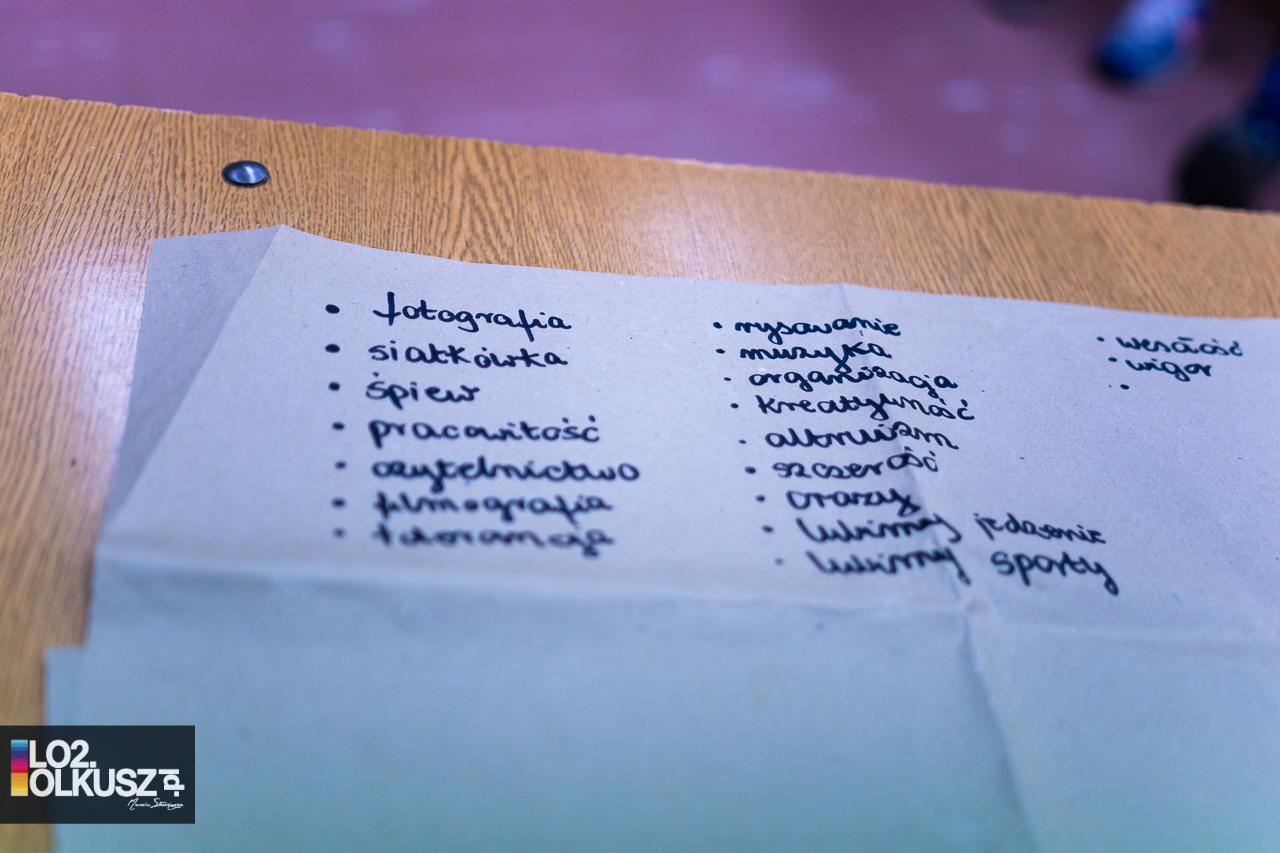 • fotografia
• siatkówka
• śpiew
• pracowitość
• czytelnictwo
• filmografia
• rysowanie
• muzyka
• organizacja
• kreatywność
• altruizm
• szczerość
• crazy
• lubimy jedzenie
• lubimy sporty
• wesołość
• wigor
•
LO2.
OLKUSZ.pl